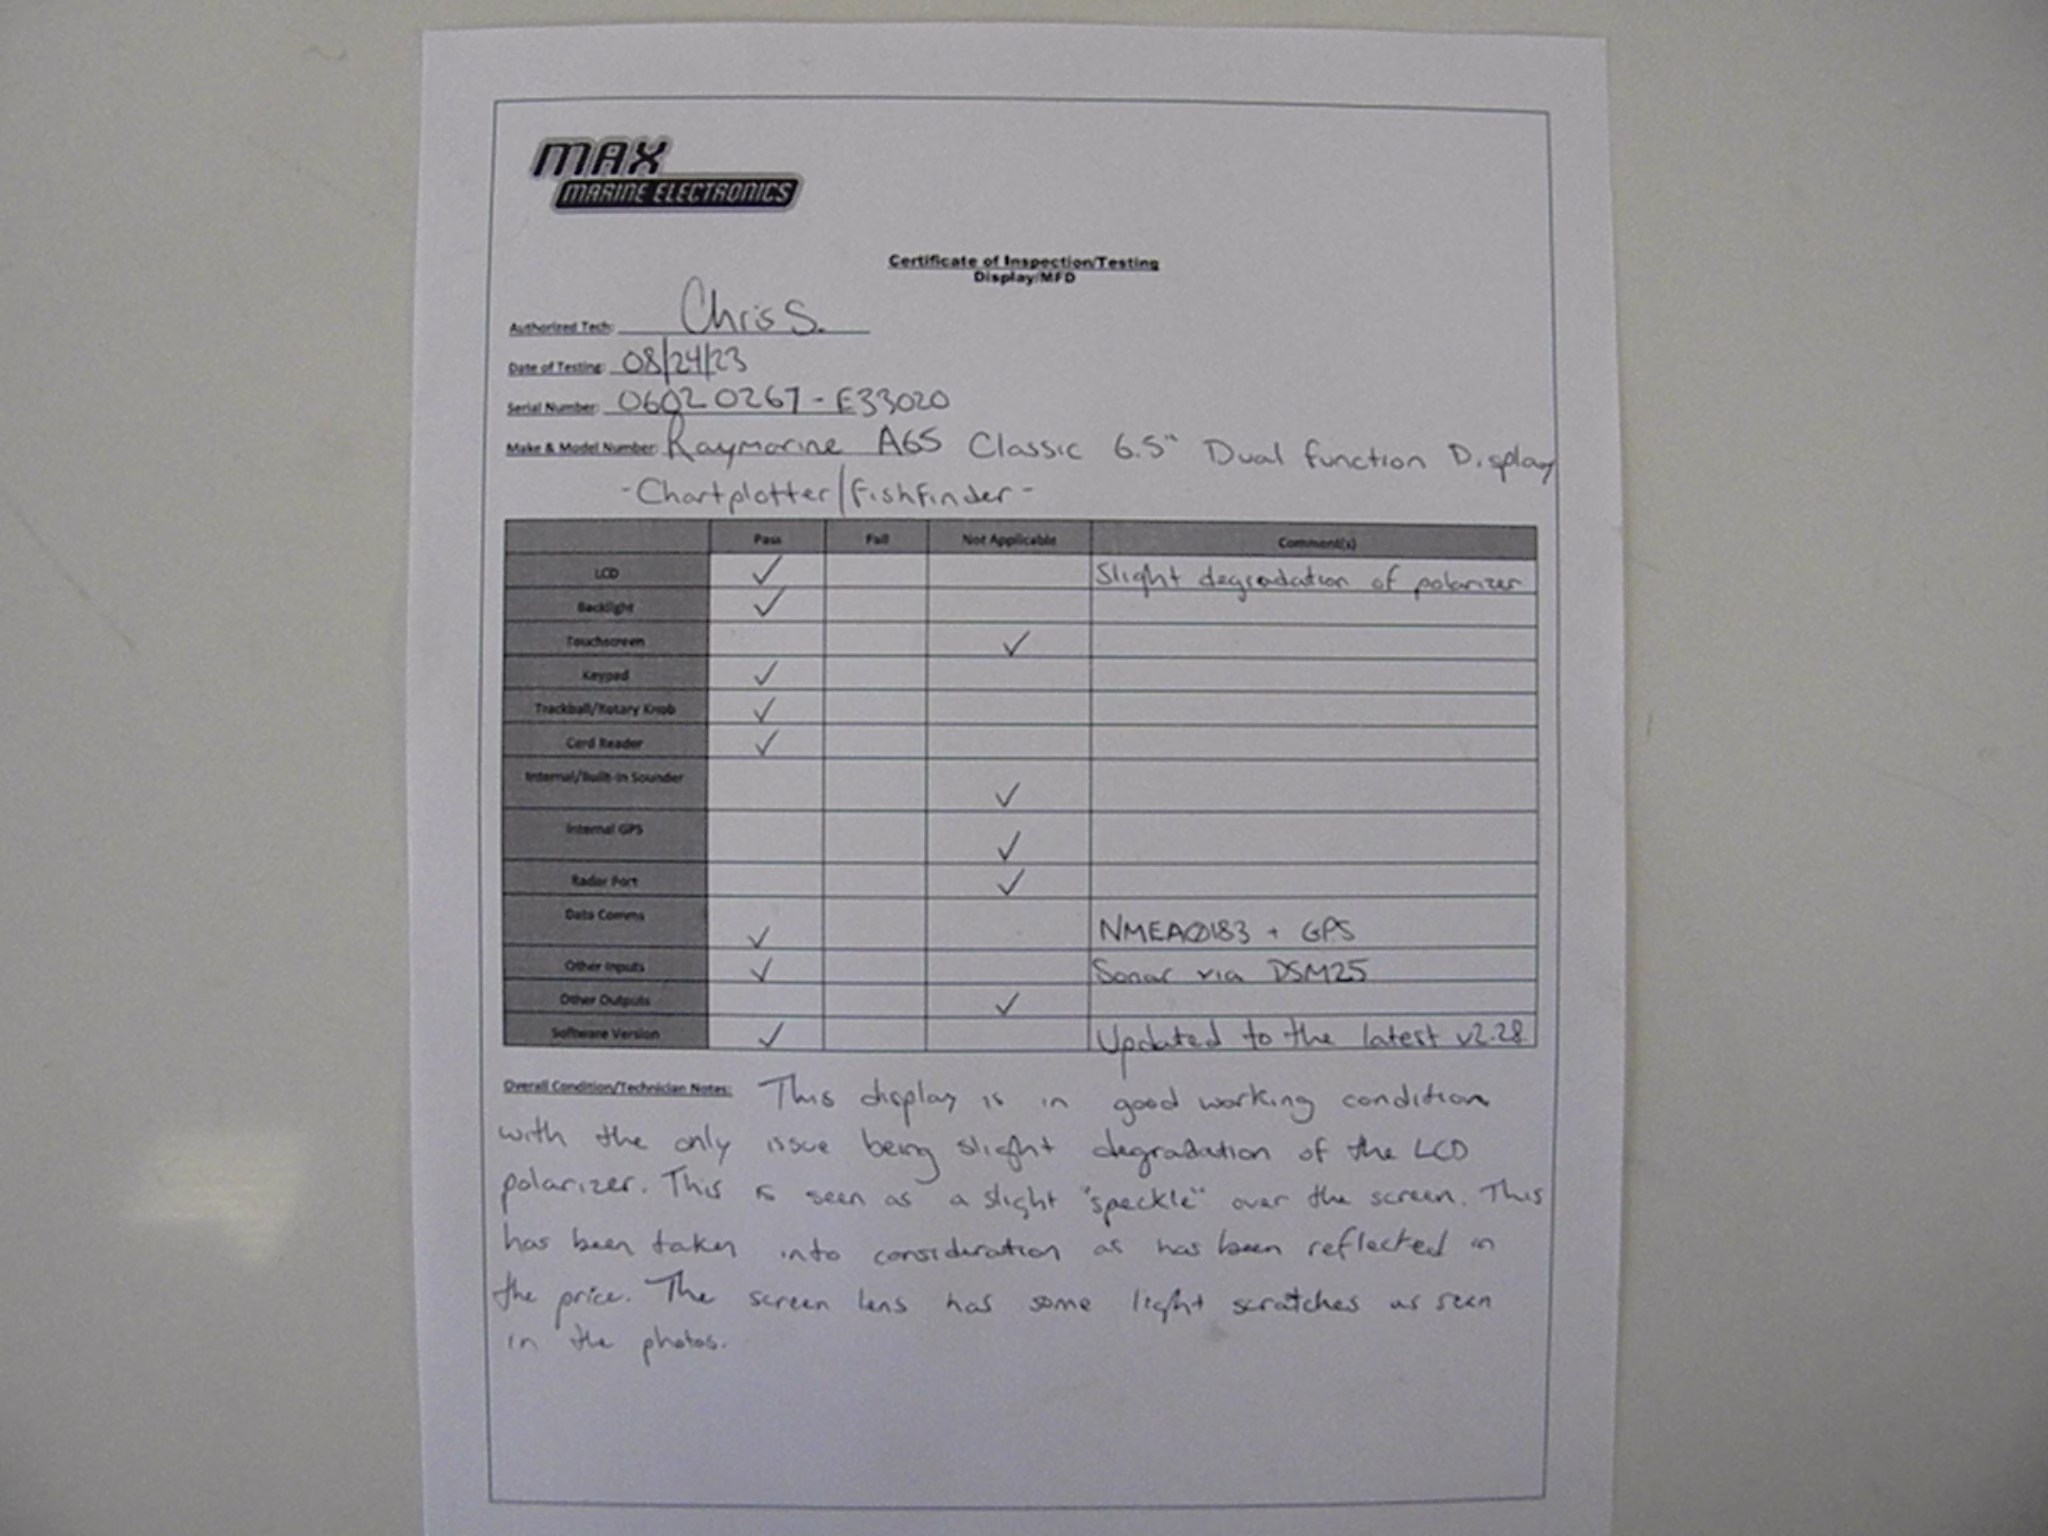 MAX
MARINE ELECTRONICS
Certificate of Inspection/Testing
Display/MFD
Authorized Tech: Chris S.
Date of Testing: 08/24/23
Serial Number: 0602 0267 - E33020
Make & Model Number: Raymarine A65 Classic 6.5" Dual function Display
- Chartplotter/fishfinder -
Pass Fail Not Applicable Comment(s)
LCD ✓ Slight degradation of polarizer
Backlight ✓
Touchscreen ✓
Keypad ✓
Trackball/Rotary Knob ✓
Card Reader ✓
Internal/Built-in Sounder ✓
Internal GPS ✓
Radar Port ✓
Data Comms ✓ NMEA0183 + GPS
Other Inputs ✓ Sonar via DSM25
Other Outputs ✓
Software Version ✓ Updated to the latest v2.28
Overall Condition/Technician Notes: This display is in good working condition
with the only issue being slight degradation of the LCD
polarizer. This is seen as a slight "speckle" over the screen. This
has been taken into consideration as has been reflected in
the price. The screen lens has some light scratches as seen
in the photos.